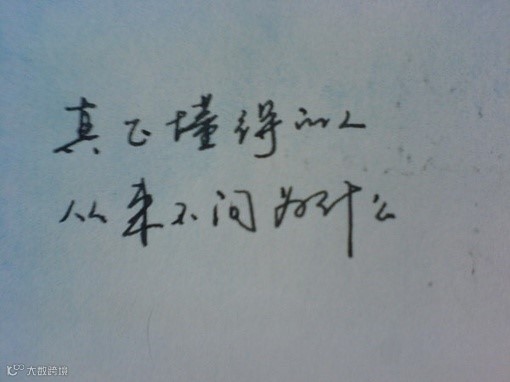 真正懂得的人
从来不问为什么
大数跨境